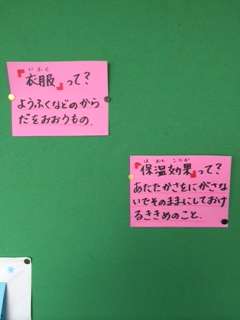 いふく
『衣服』って?
ようふくなどのから
だをおおうもの。
ほおんこうか
『保温効果』って?
あたたかさをにがさな
いでそのままにしておけ
るききめのこと。